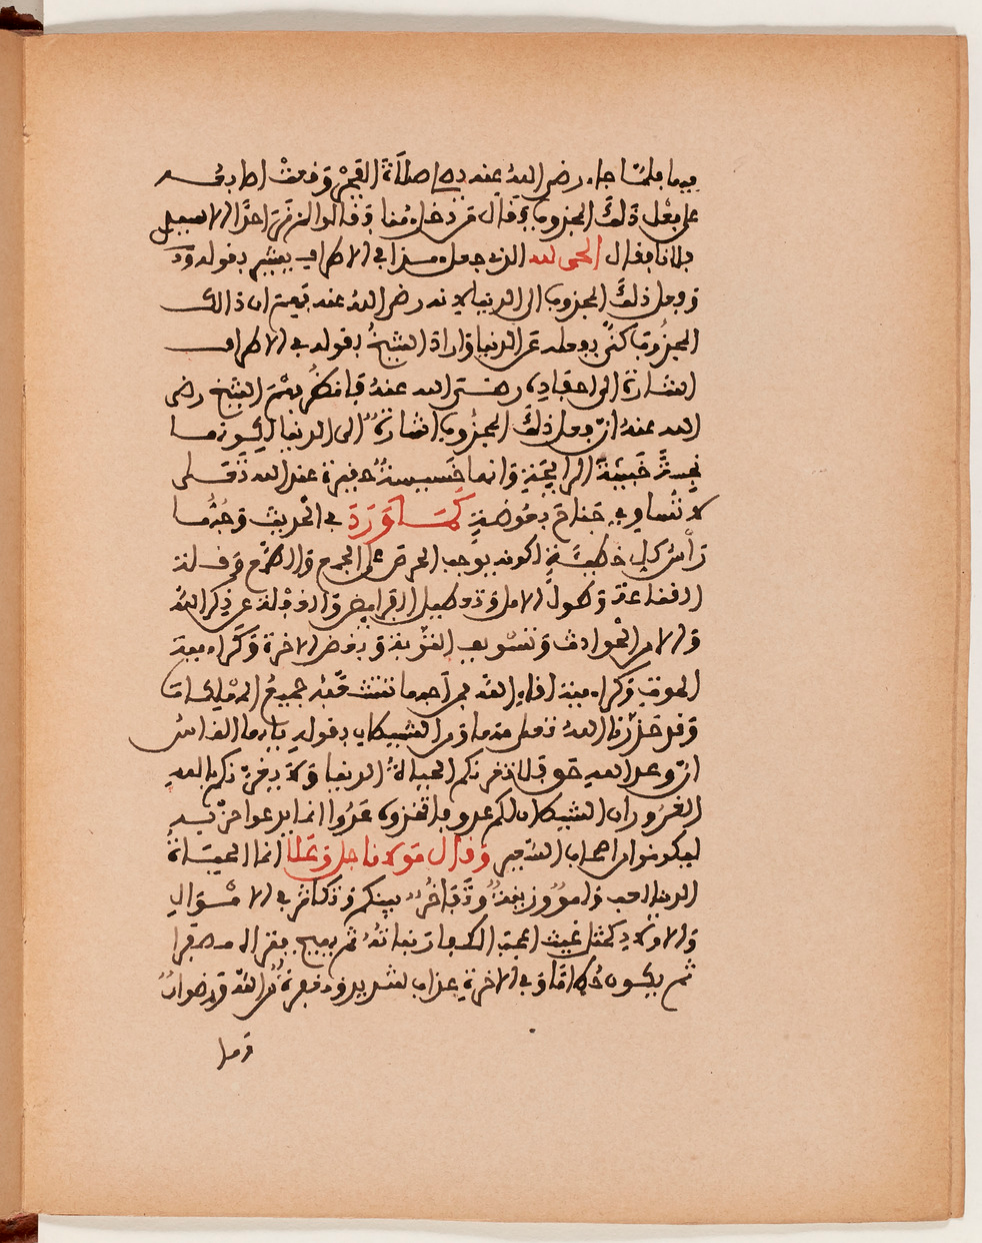 فيها فلمّا جاء رضي الله عنه صلاة الفجر وقعت
على بعل ذلك المجزوم فقال من دخل هنا وقالوا لا سبيل
فلانا فقال الحمد لله الذي جعل هذا في الاطراف يعني بقوله
وفعل ذلك المجزوم الى الدنيا لانه رضي الله عنه ان ذالك
المجزوم عن الدنيا واراد الشيخ بقوله في الاطراف
اشارة الى احفاده رضي الله عنه فانظر الشيخ رضي
الله عنه ان فعل ذلك المجزوم اشارة الى الدنيا لكونها
نجسة خبيثة الرايحة وانها خسيسة حفيرة عند الله تعلى
لا تساوي جناح بعوضة كما ورد في الحديث وحبها
رأس كل خطيئة لكونه يوجب الحرص على الجمع والطمع وقلة
القناعة وطول الامل وتعطيل الفرايض والغفلة عن ذكر الله
والامر الحوادث وتسويف التوبة وبغض الاخرة وكراهية
الموت وكراهية لقاء الله جميع المهلكات
وقد حذرنا الله تعلى منها ومن الشيطان بقوله يا ايها الناس
ان وعد الله حق فلا تغرنكم الحياة الدنيا ولا يغرنكم بالله
الغرور ان الشيطان لكم عدو فاتخذوه عدوا انما يدعوا حزبه
ليكونوا من اصحاب السعير وقال مولانا جل وعلا انما الحياة
الدنيا لعب ولهو وزينة وتفاخر بينكم وتكاثر في الاموال
والاولاد كمثل غيث اعجب الكفار نباته ثم يهيج فتراه مصفرا
ثم يكون حطاما وفي الاخرة عذاب شديد ومغفرة من الله ورضوان
وما